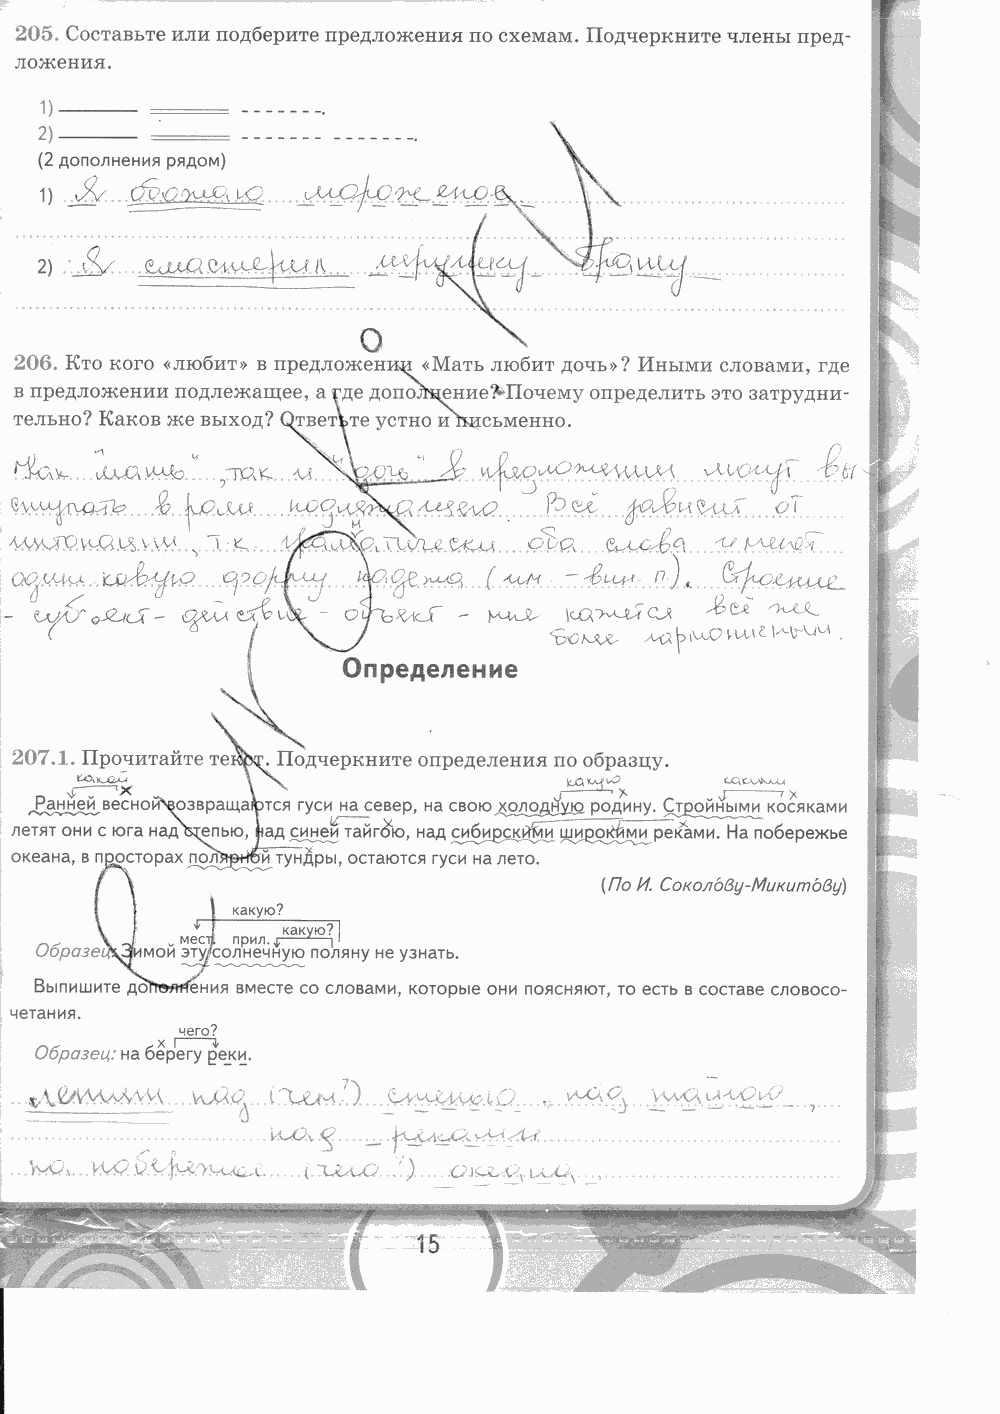 205. Составьте или подберите предложения по схемам. Подчеркните члены пред-
ложения.
1)
2)
(2 дополнения рядом)
1) Я обожаю мороженое
2) Я смастерил игрушку брату
206. Кто кого «любит» в предложении «Мать любит дочь»? Иными словами, где
в предложении подлежащее, а где дополнение? Почему определить это затрудни-
тельно? Каков же выход? Ответьте устно и письменно.
Как "мать", так и "дочь" в предложении могут вы
ступать в роли подлежащего. Всё зависит от
интонации, т.к. грамматически оба слова имеют
одинаковую форму падежа (им. - вин. п.). Строение
- субъект - действие - объект - мне кажется всё же
более гармоничным.
Определение
207.1. Прочитайте текст. Подчеркните определения по образцу.
какой какую какими
Ранней весной возвращаются гуси на север, на свою холодную родину. Стройными косяками
летят они с юга над степью, над синей тайгою, над сибирскими широкими реками. На побережье
океана, в просторах полярной тундры, остаются гуси на лето.
(По И. Соколо́ву-Микито́ву)
какую?
мест. прил. какую?
Образец: Зимой эту солнечную поляну не узнать.
Выпишите дополнения вместе со словами, которые они поясняют, то есть в составе словосо-
четания.
x чего?
Образец: на берегу реки.
летят над (чем?) степью, над тайгою,
над реками
на побережье (чего?) океана.
15